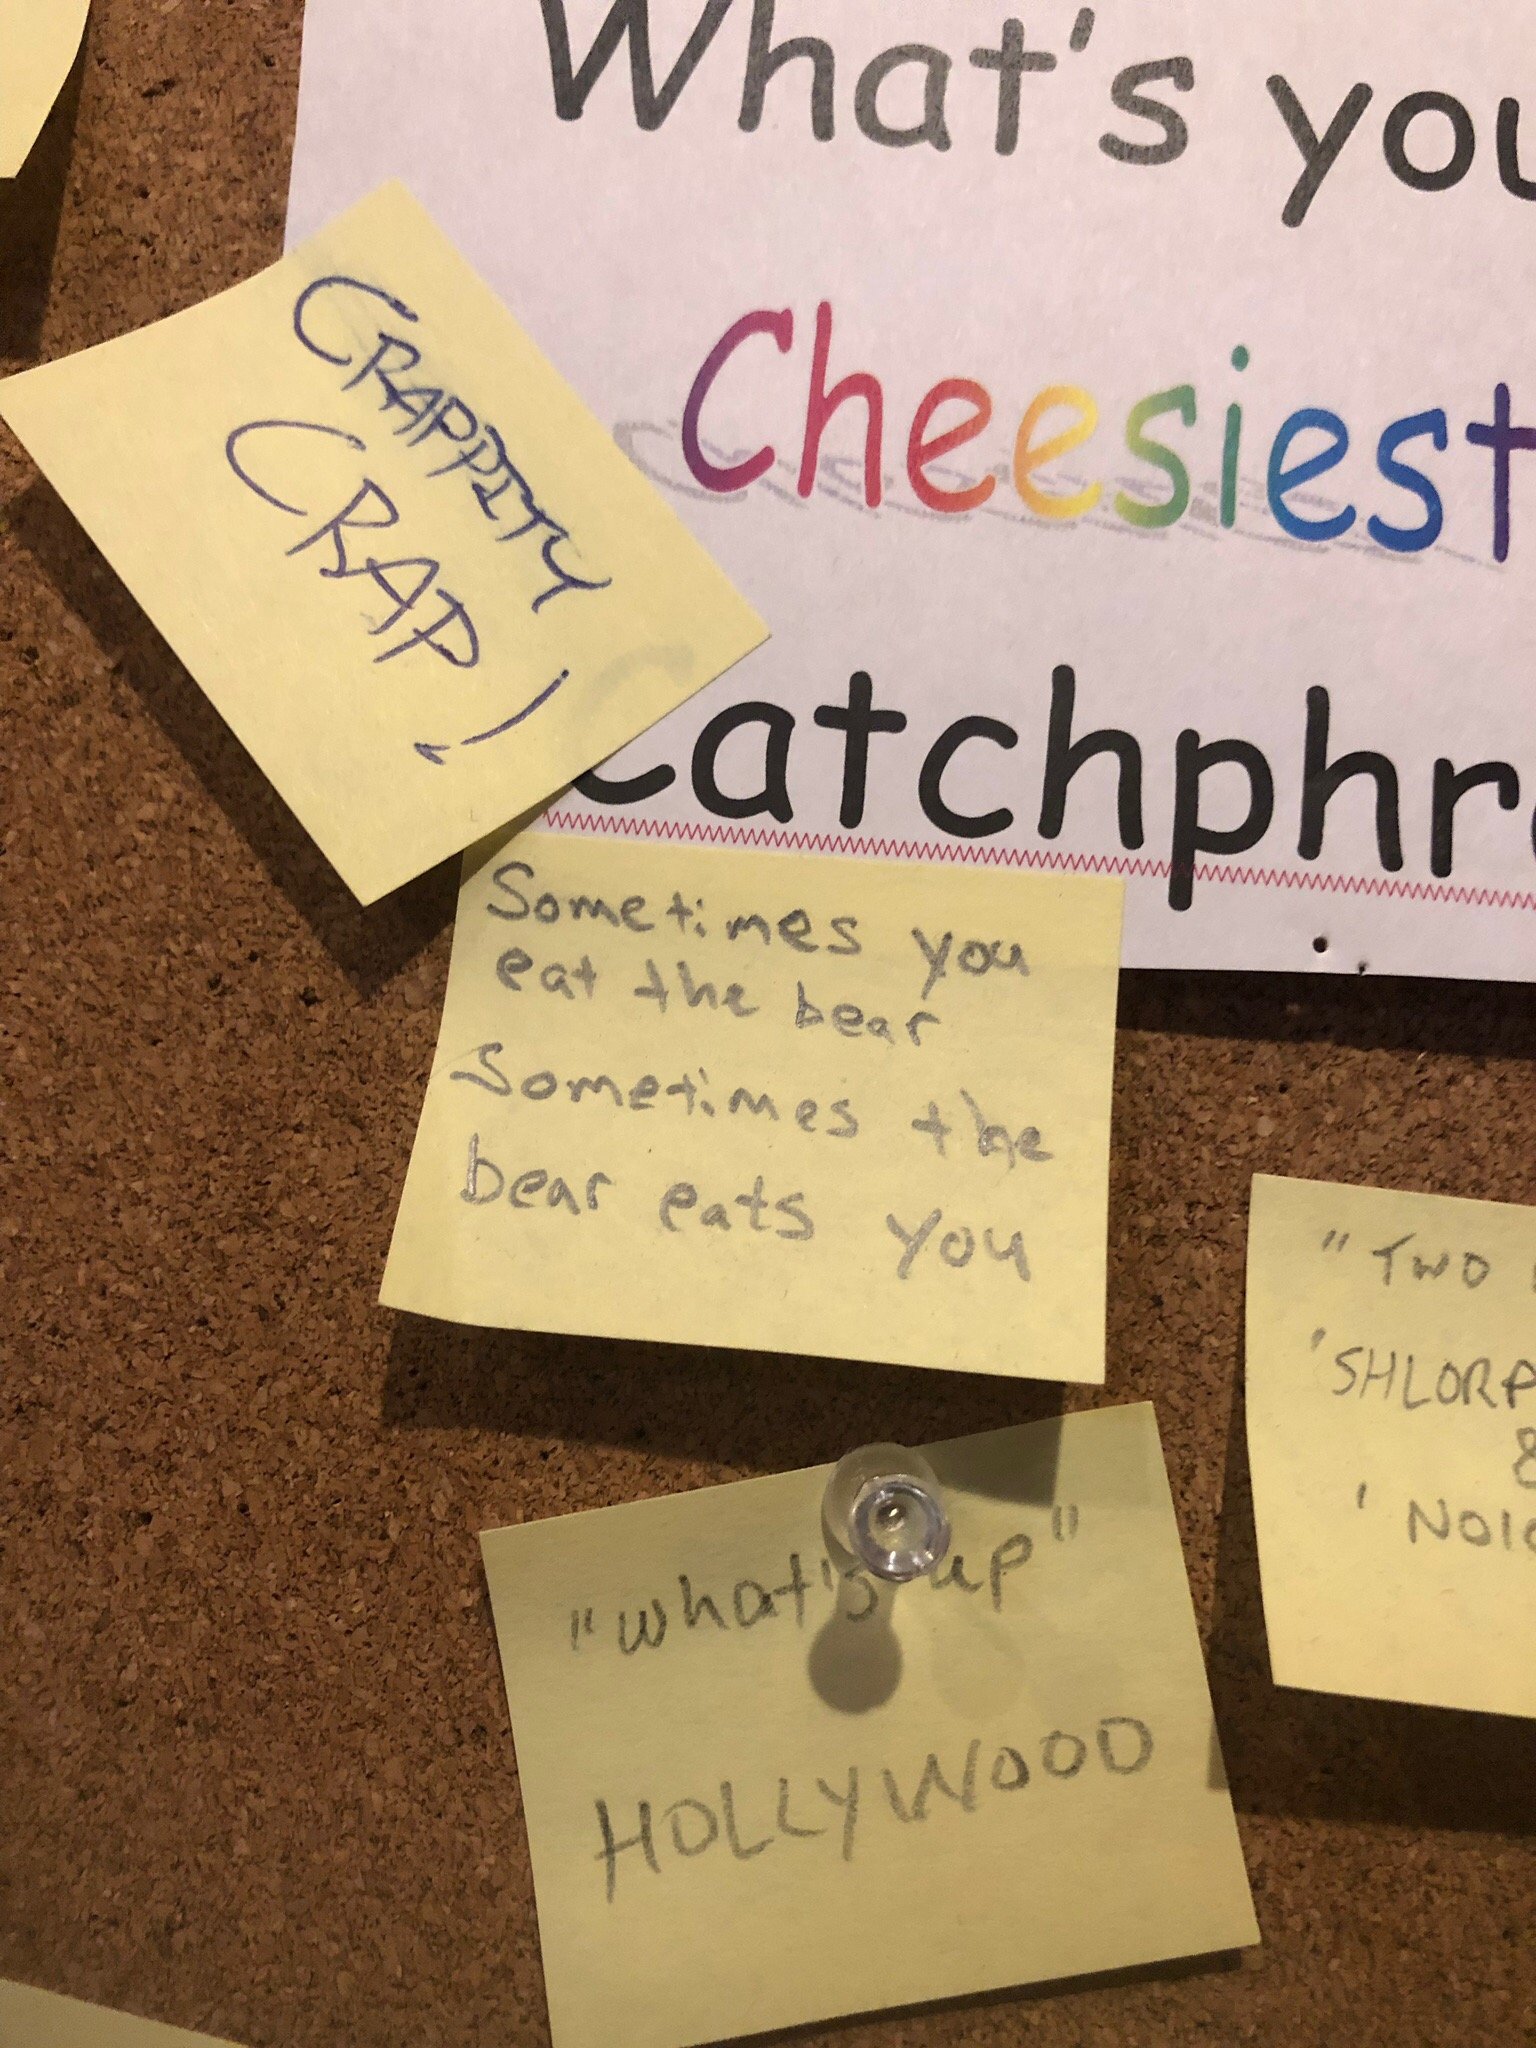 What's you
Cheesiest
Catchphr
CRAPPITY
CRAP!
Sometimes you
eat the bear
Sometimes the
bear eats you
"what's up"
HOLLYWOOD
"TWO
'SHLORP
&
'NOIC